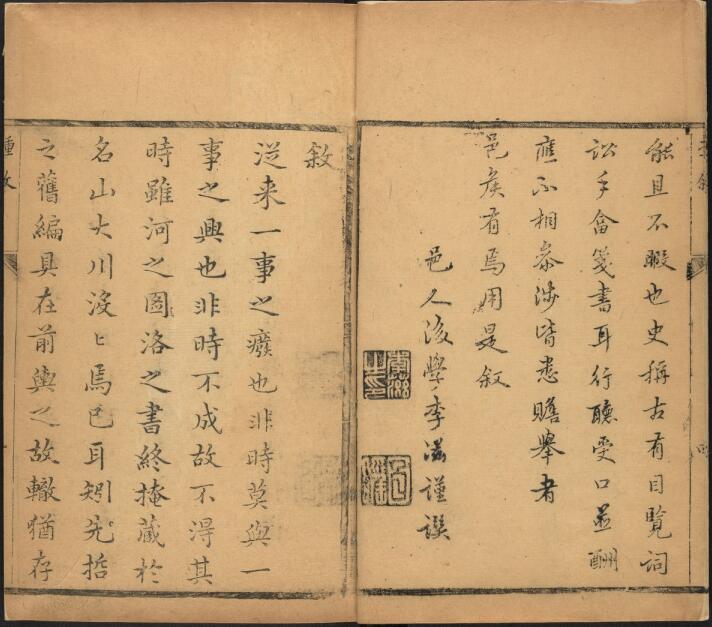 能且不暇也史稱古有目覽詞
訟手畣箋書耳行聽受口並酬
應不相參涉皆悉贍舉者
邑矦有焉用是敘
邑人後學李滋謹譔
敘
從来一事之癈也非時莫與一
事之興也非時不成故不得其
時雖河之圖洛之書終掩藏於
名山大川沒〻焉已耳矧先哲
之舊編具在前輿之故轍猶存